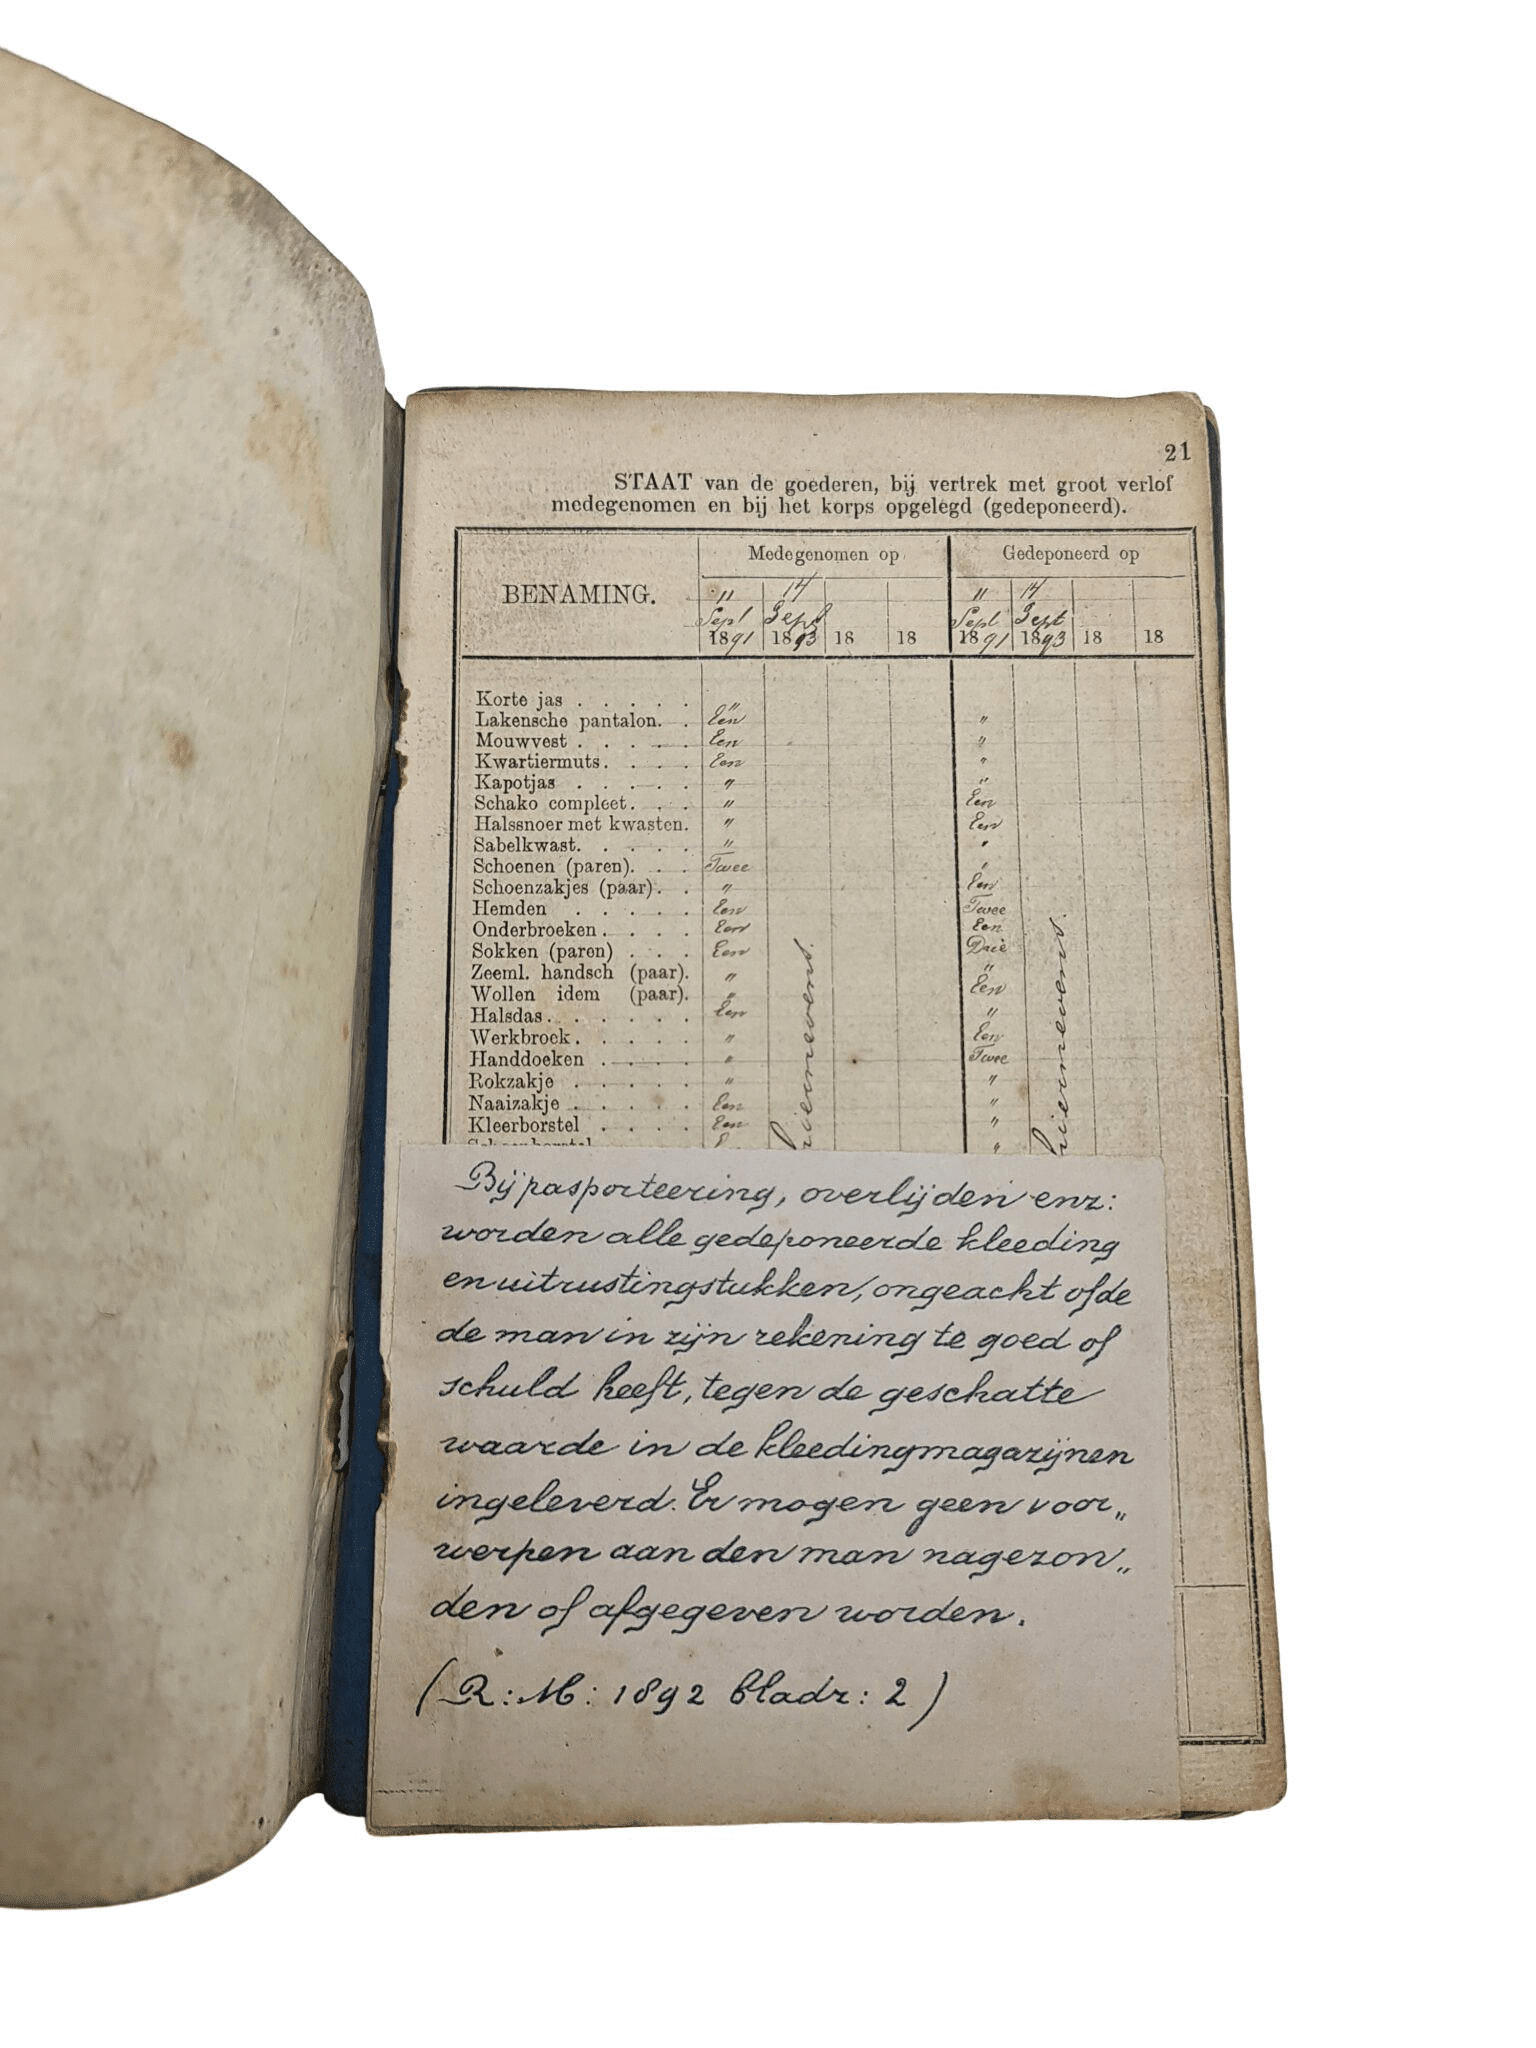 21
STAAT van de goederen, bij vertrek met groot verlof
medegenomen en bij het korps opgelegd (gedeponeerd).
BENAMING. Medegenomen op Gedeponeerd op
" 14 " 14
Sept Sept Sept Sept
1891 1893 18 18 1891 1893 18 18
Korte jas . . . . . "
Lakensche pantalon. . Een "
Mouwvest . . . . . Een "
Kwartiermuts. . . . Een "
Kapotjas . . . . . " "
Schako compleet. . . " Een
Halssnoer met kwasten. " Een
Sabelkwast. . . . . " "
Schoenen (paren). . . Twee "
Schoenzakjes (paar). . " Een
Hemden . . . . . Een Twee
Onderbroeken. . . . Een Een
Sokken (paren) . . . Een Drie
Zeeml. handsch (paar). " "
Wollen idem (paar). " Een
Halsdas. . . . . . Een "
Werkbroek. . . . . " Een
Handdoeken . . . . " Twee
Rokzakje . . . . . " "
Naaizakje . . . . . Een "
Kleerborstel . . . . Een "
hiernevens.
hiernevens.
Bij pasporteering, overlijden enz:
worden alle gedeponeerde kleeding
en uitrustingstukken, ongeacht of de
de man in zijn rekening te goed of
schuld heeft, tegen de geschatte
waarde in de kleedingmagazijnen
ingeleverd. Er mogen geen voor„
werpen aan den man nagezon„
den of afgegeven worden.
(R: M: 1892 bladz: 2)